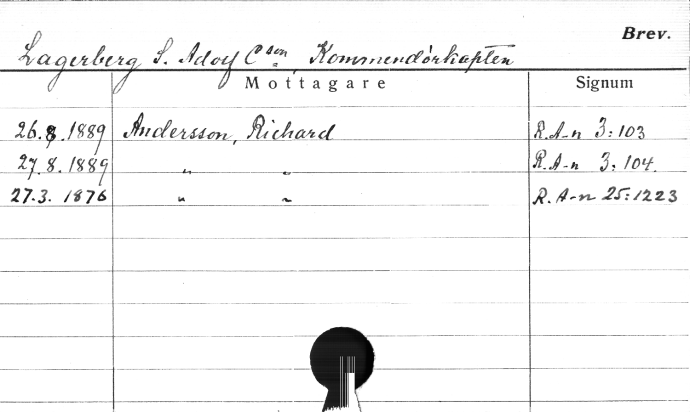 Brev.
Lagerberg S. Adolf Cson, Kommendörkapten
Mottagare Signum
26.8.1889 Andersson, Richard R.A-n 3:103
27.8.1889 " " R.A-n 3:104.
27.3.1876 " " R.A-n 25:1223